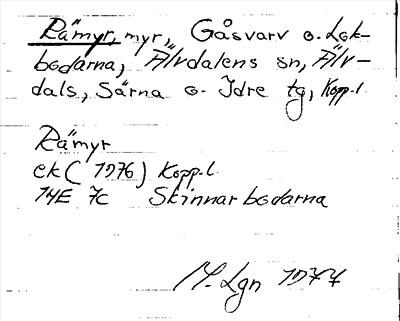 Rämyr, myr, Gåsvarv o. Lok-
bodarna, Älvdalens sn, Älv-
dals, Särna o. Idre tg, Kopp.l
Rämyr
ek (1976) Kopp.l.
14E 7c Skinnarbodarna
M. Lgn 1977